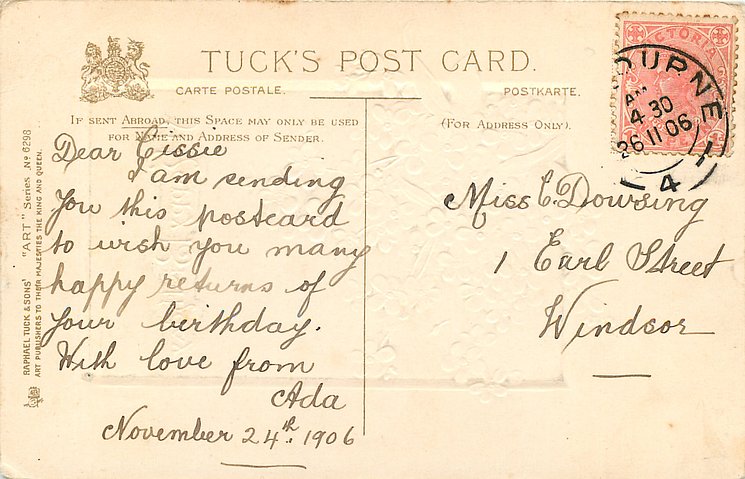 TUCK'S POST CARD.
CARTE POSTALE. POSTKARTE.
IF SENT ABROAD, THIS SPACE MAY ONLY BE USED
FOR NAME AND ADDRESS OF SENDER.
(FOR ADDRESS ONLY).
Dear Cissie
I am sending
you this postcard
to wish you many
happy returns of
your birthday.
With love from
Ada
November 24th. 1906
Miss C. Dowsing
1 Earl Street
Windsor
VICTORIA
OURNE
AM
4 30
26 11 06
4
RAPHAEL TUCK & SONS' "ART" Series No 6298
ART PUBLISHERS TO THEIR MAJESTIES THE KING AND QUEEN.